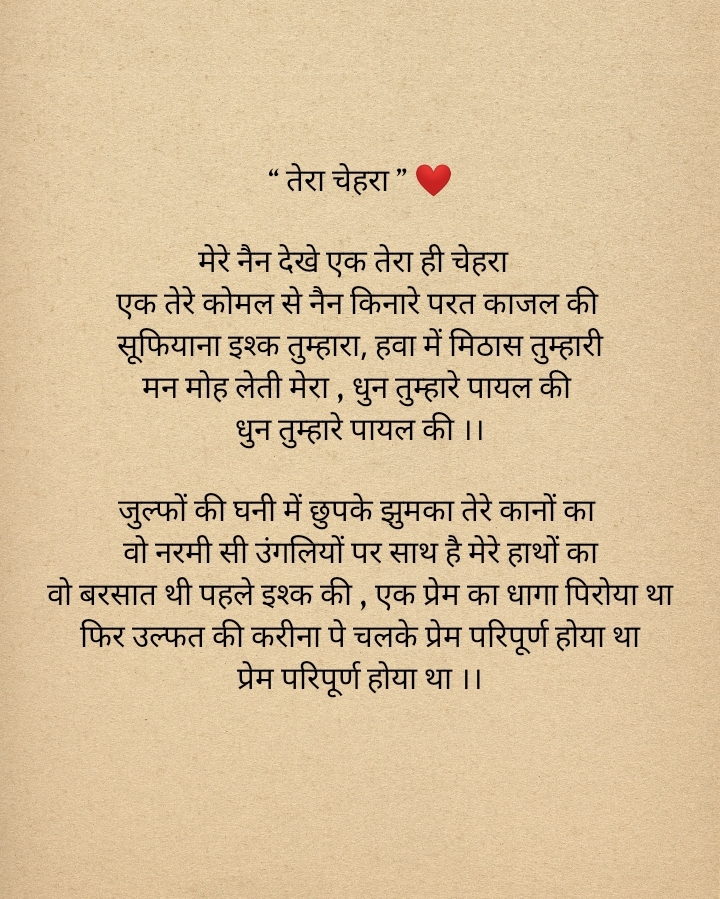 “ तेरा चेहरा ” ❤️
मेरे नैन देखे एक तेरा ही चेहरा
एक तेरे कोमल से नैन किनारे परत काजल की
सूफियाना इश्क तुम्हारा, हवा में मिठास तुम्हारी
मन मोह लेती मेरा , धुन तुम्हारे पायल की
धुन तुम्हारे पायल की ।।
जुल्फों की घनी में छुपके झुमका तेरे कानों का
वो नरमी सी उंगलियों पर साथ है मेरे हाथों का
वो बरसात थी पहले इश्क की , एक प्रेम का धागा पिरोया था
फिर उल्फत की करीना पे चलके प्रेम परिपूर्ण होया था
प्रेम परिपूर्ण होया था ।।